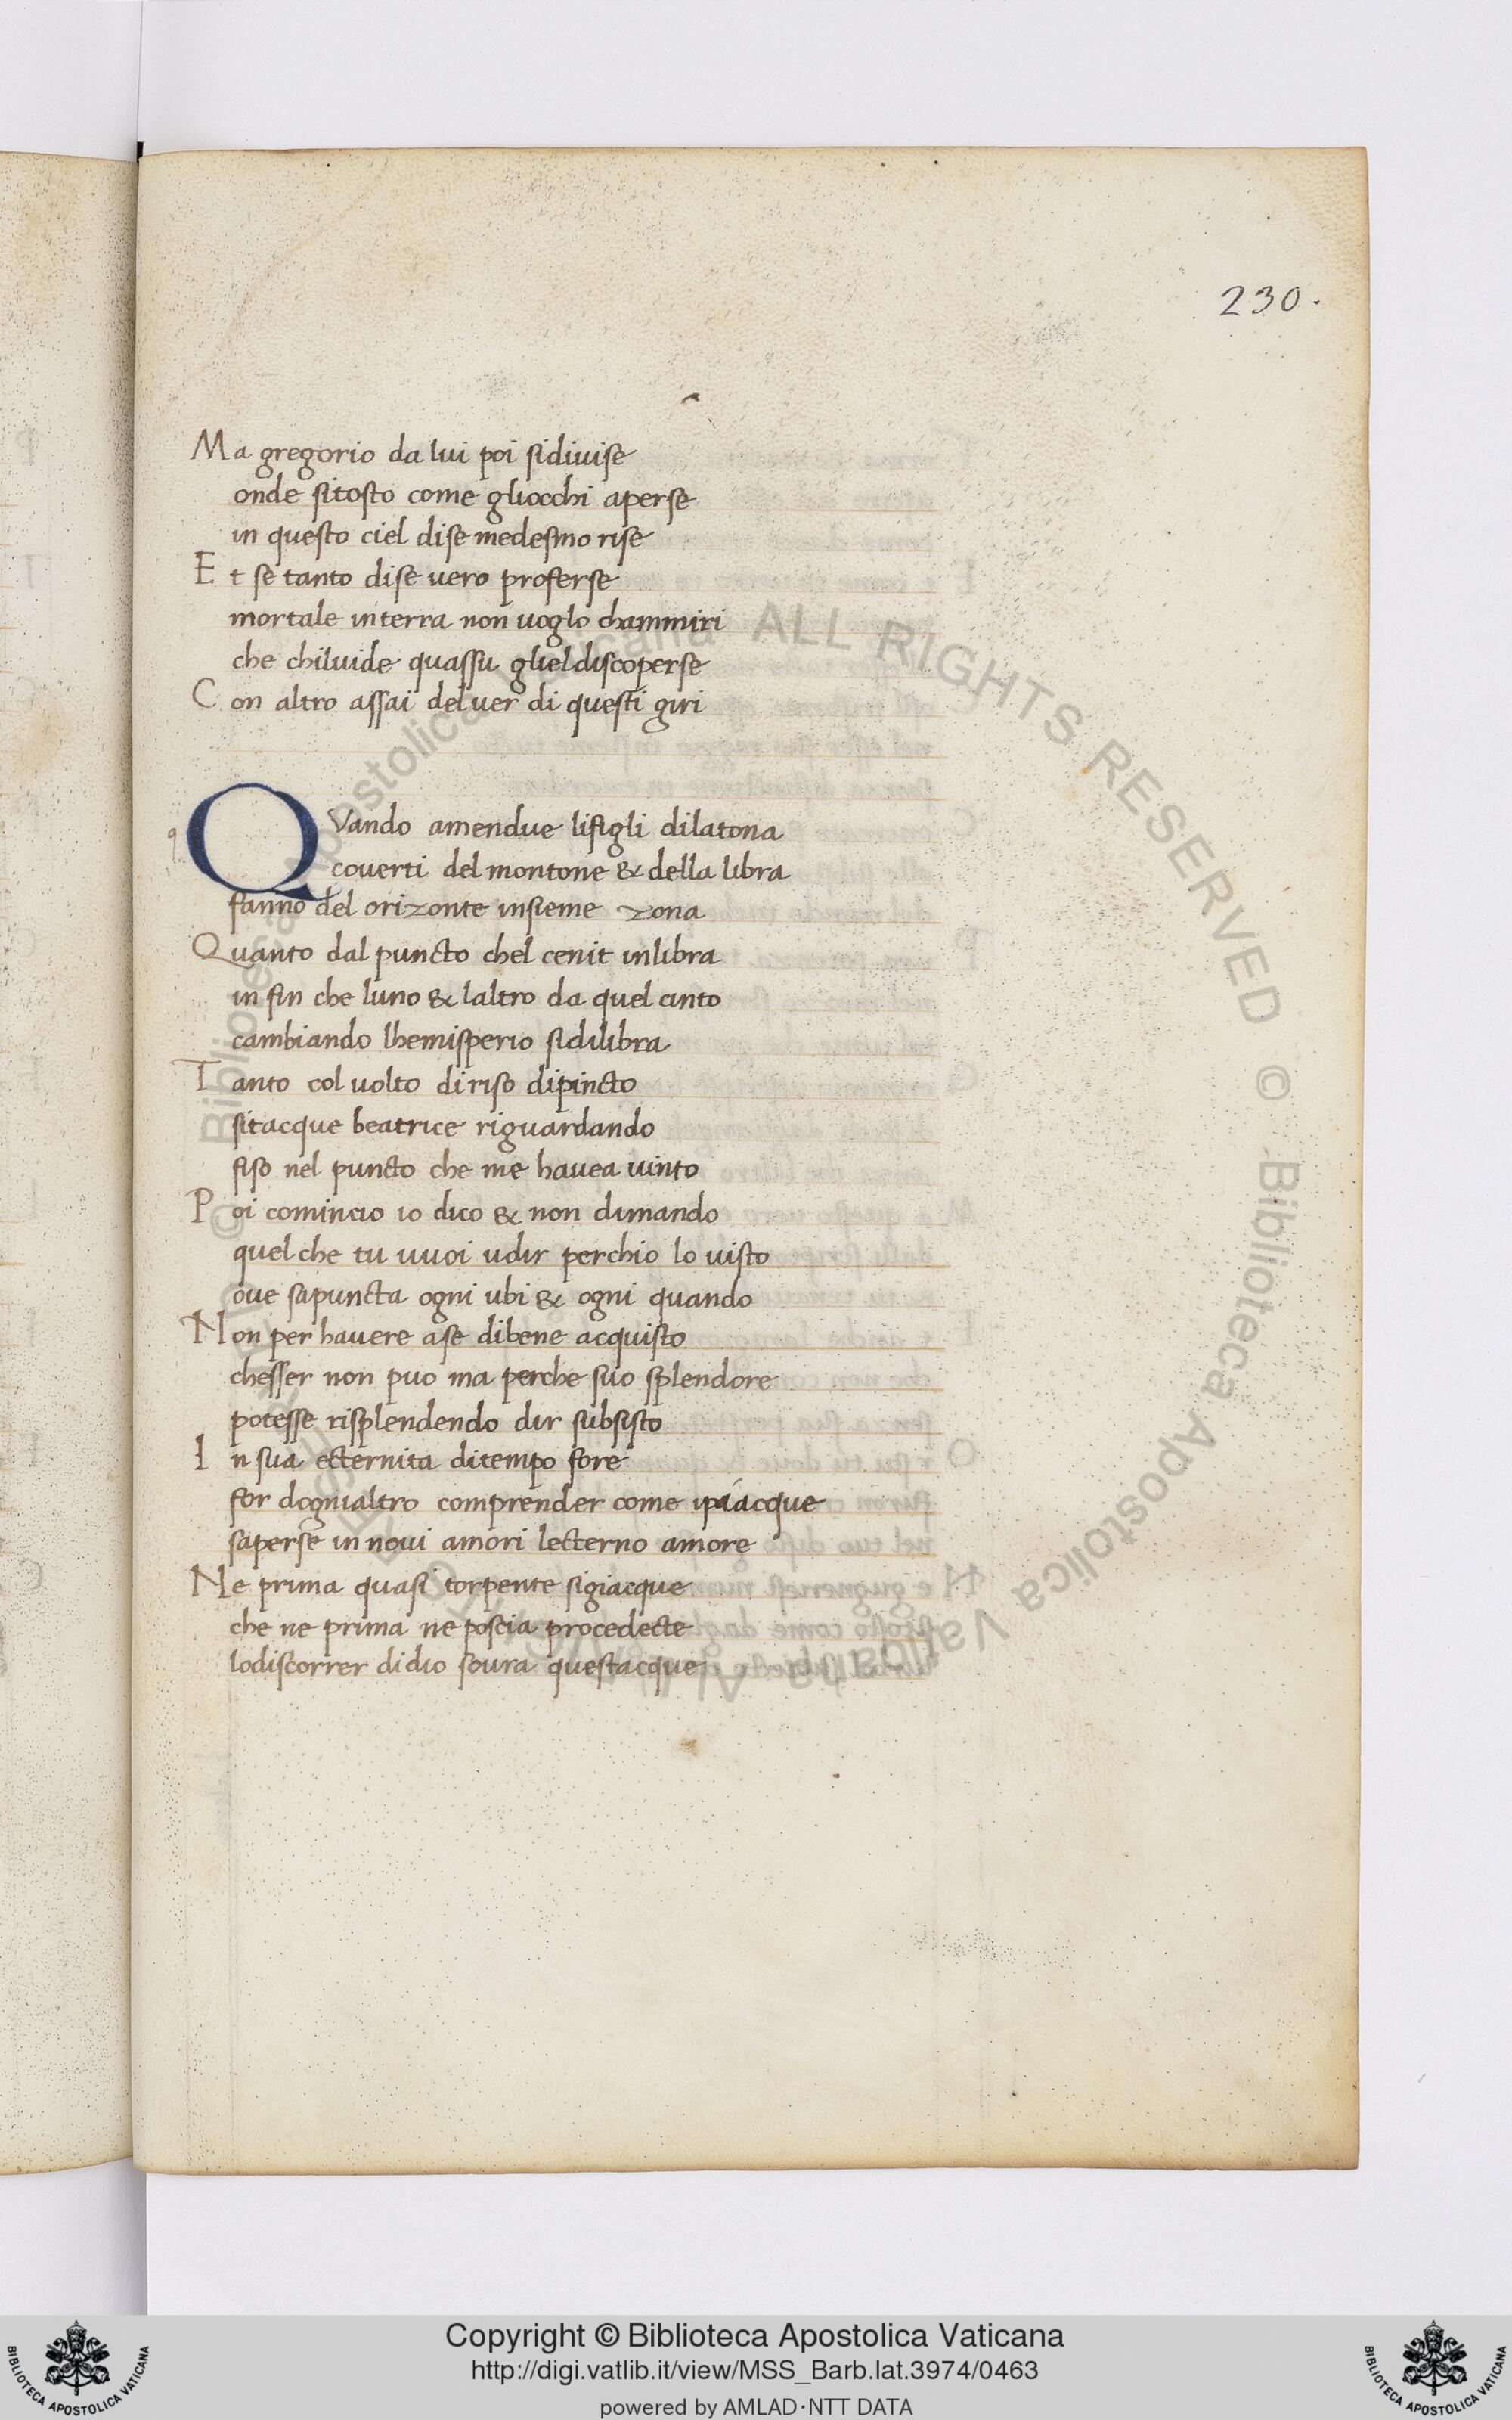 230.
Ma gregorio da lui poi sidiuise
onde sitosto come gliocchi aperse
in questo ciel dise medesmo rise
Et se tanto dise uero proferse
mortale interra non uoglo chammiri
che chiluide quassu glieldiscoperse
Con altro assai deluer di questi giri
q
QVando amendue lifigli dilatona
couerti del montone & della libra
fanno del orizonte insieme zona
Quanto dal puncto chel cenit inlibra
in fin che luno & laltro da quel cinto
cambiando lhemisperio sidilibra
Tanto col uolto diriso dipincto
sitacque beatrice riguardando
fiso nel puncto che me hauea uinto
Poi comincio io dico & non dimando
quel che tu uuoi udir perchio lo uisto
oue sapuncta ogni ubi & ogni quando
Non per hauere ase dibene acquisto
chesser non puo ma perche suo splendore
potesse risplendendo dir subsisto
In sua ecternita ditempo fore
for dognialtro comprender come ipiacque
saperse in noui amori lecterno amore
Ne prima quasi torpente sigiacque
che ne prima ne poscia procedecte
lodiscorrer didio soura questacque
© Biblioteca Apostolica Vaticana ALL RIGHTS RESERVED © Biblioteca Apostolica Vaticana ALL RIGHTS RESERVED
BIBLIOTECA APOSTOLICA VATICANA
Copyright © Biblioteca Apostolica Vaticana
http://digi.vatlib.it/view/MSS_Barb.lat.3974/0463
powered by AMLAD·NTT DATA
BIBLIOTECA APOSTOLICA VATICANA